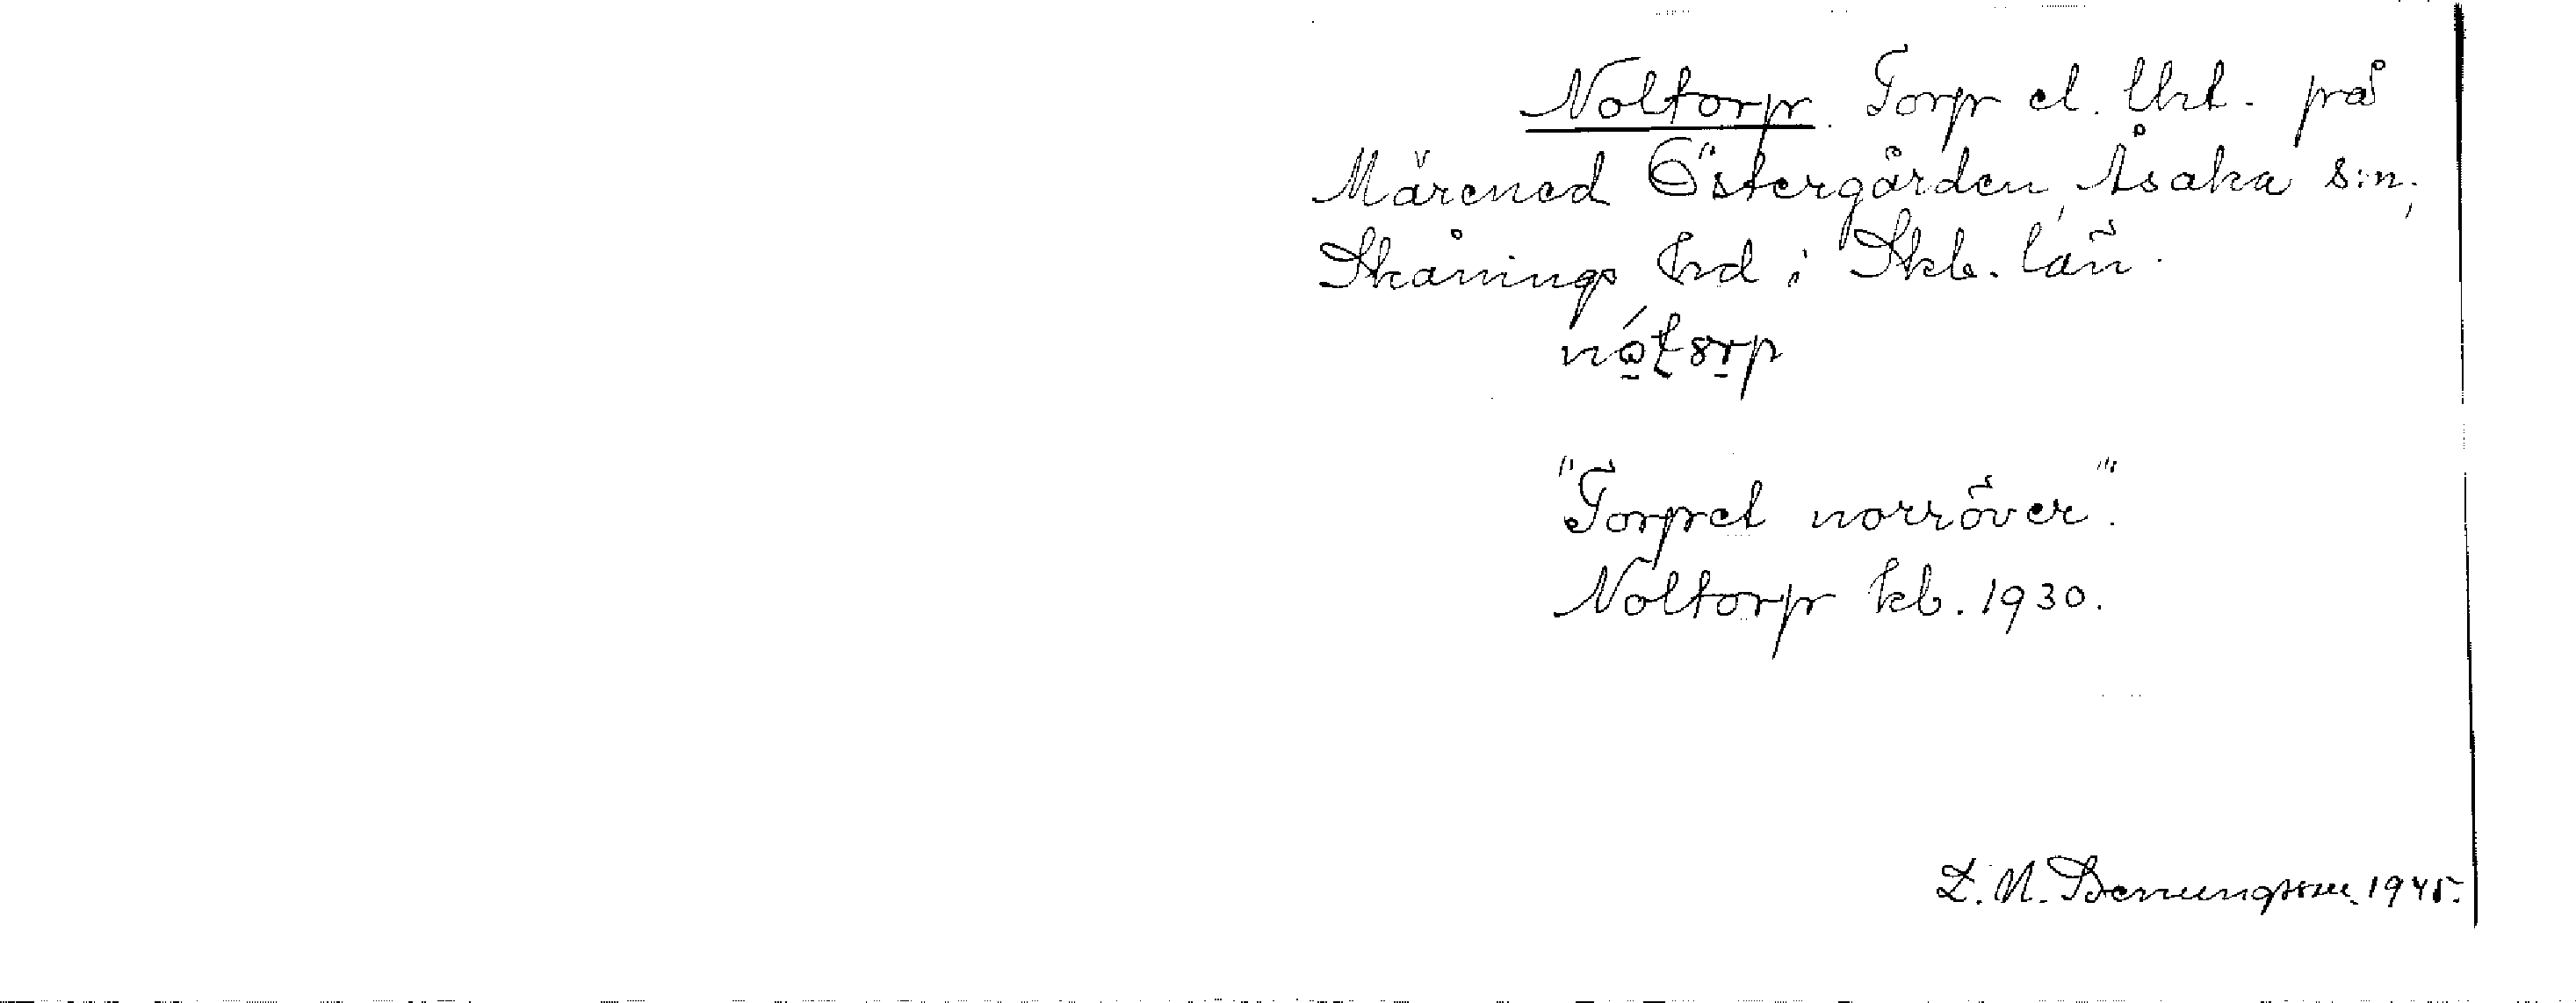 Noltorp. Torp el. lht. på
Märened Östergården, Åsaka s:n,
Skånings hd i Skb. län.
"Torpet norröver".
Noltorp kb. 1930.
1945.